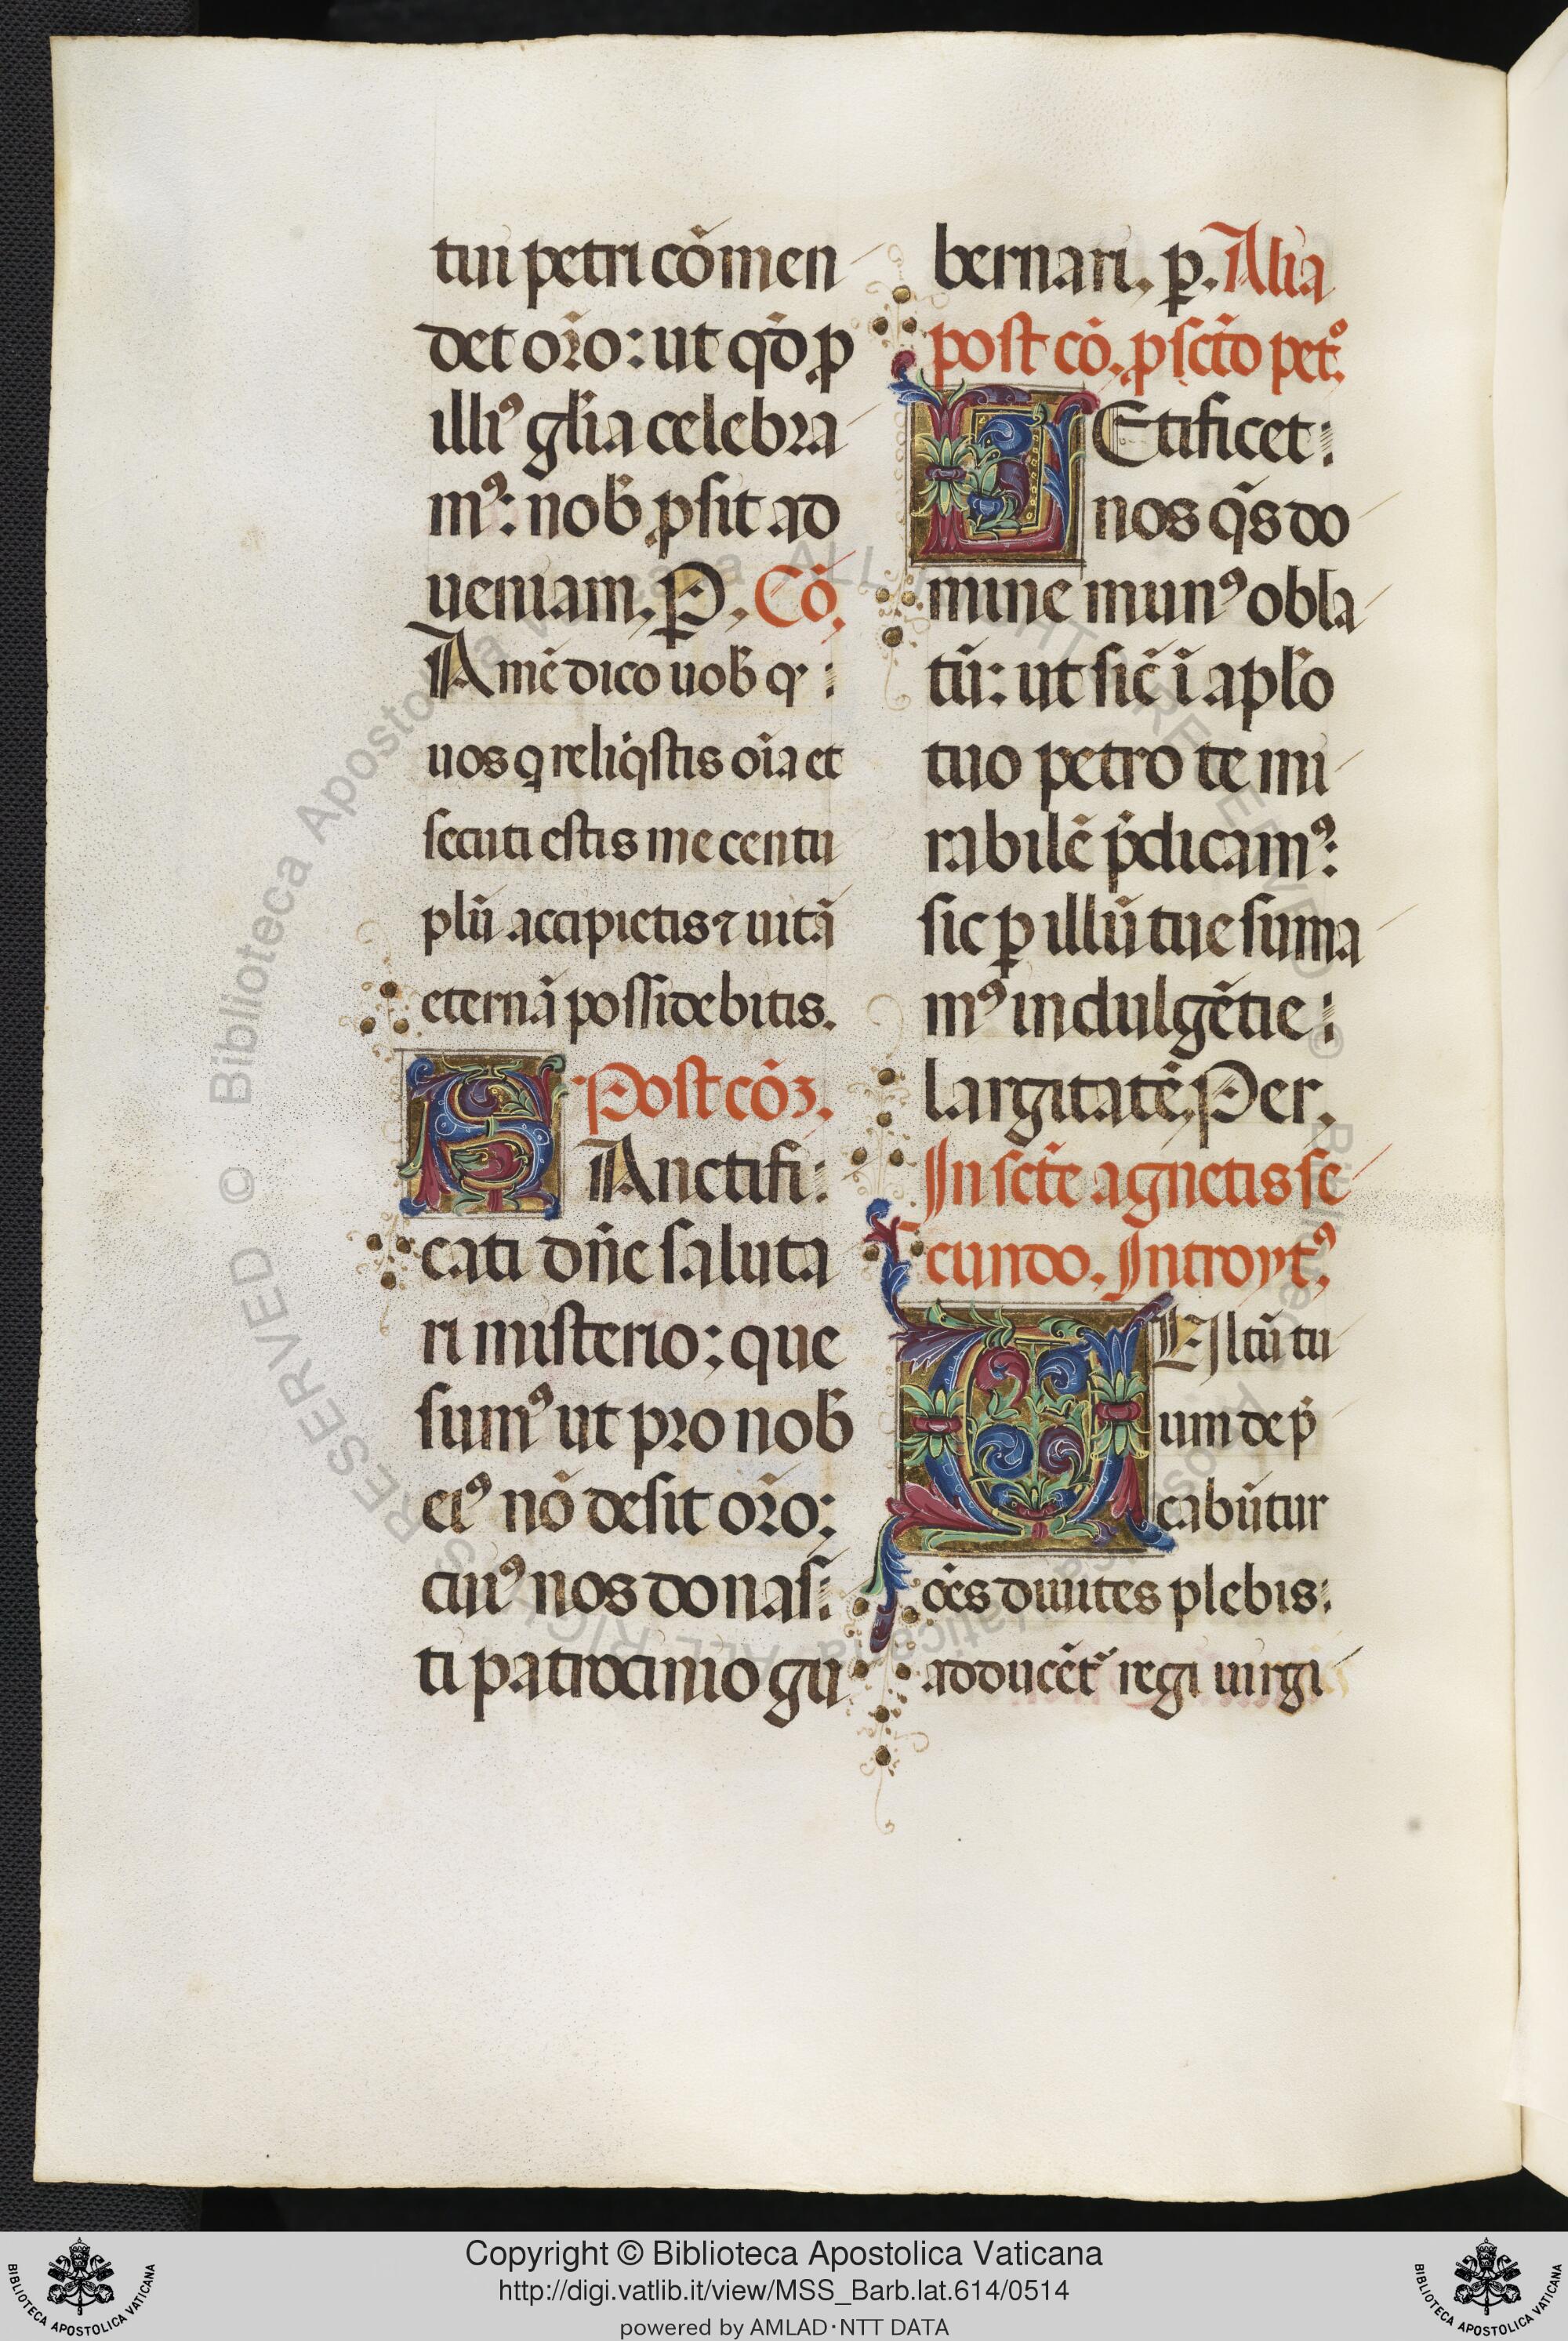 tui petri cõmen
det or̃o: ut qð ꝓ
illiꝰ gl̃ia celebra
mꝰ: nob̃ ꝓsit ad
ueniam. P. Cõ.
Amẽ dico uob̃ ꝙ
uos q reliq̃stis oĩa et
secuti estis me centu
plũ accipietis ⁊ uitã
eternã possidebitis.
Post cõꝫ.
SAnctifi
cati dñe saluta
ri misterio: que
sumꝰ ut pro nob̃
eiꝰ nõ desit or̃o:
cuiꝰ nos donas
ti patrocinio gu
bernari. ꝑ. Alia
post cõ. ꝓ sct̃o pet͛º
LEtificet
nos q̃s do
mine munꝰ obla
tũ: ut sic̃ ĩ apl̃o
tuo petro te mi
rabilẽ p̃dicamꝰ:
sic ꝑ illũ tue suma
mꝰ indulgẽtie
largitatẽ. Per.
In scte̅ agnetis se
cundo. Introytꝰ.
UUltũ tu
um dep̃
cabũtur
oẽs diuites plebis:
adducẽt᷑ regi uirgi
Copyright © Biblioteca Apostolica Vaticana
http://digi.vatlib.it/view/MSS_Barb.lat.614/0514
powered by AMLAD·NTT DATA
BIBLIOTECA APOSTOLICA VATICANA
BIBLIOTECA APOSTOLICA VATICANA